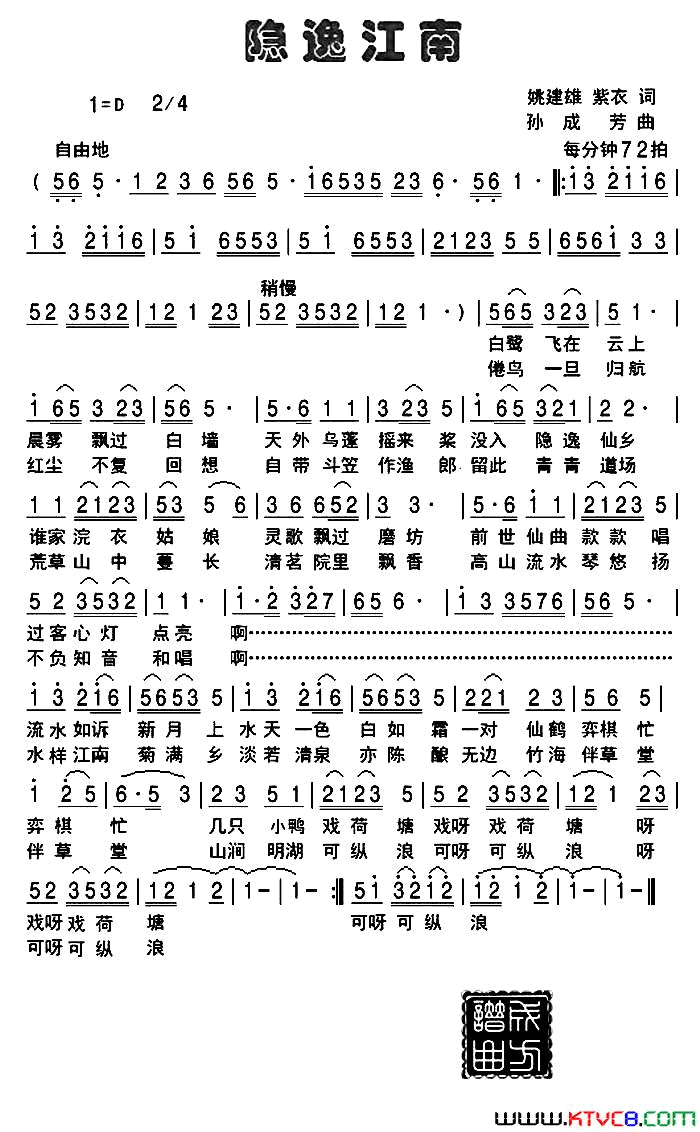 隐逸江南
1=D 2/4
姚建雄 紫衣 词
孙 成 芳 曲
自由地
每分钟72拍
( 56 5· 12 36 56 5· 16535 23 6· 56 1· ‖: 13 2116 |
13 2116 | 51 6553 | 51 6553 | 2123 55 | 6561 33 |
稍慢
52 3532 | 12 1 23 | 52 3532 | 12 1· ) | 565 323 | 51· |
白鹭 飞在 云上
倦鸟 一旦 归航
165 323 | 56 5· | 5·6 11 | 323 5 | 165 3321 | 22· |
晨雾 飘过 白墙 天外乌蓬 摇来 桨 没入 隐逸 仙乡
红尘 不复 回想 自带斗笠 作渔 郎 留此 青青 道场
11 2123 | 53 56 | 36 652 | 33· | 5·6 11 | 2123 5 |
谁家浣衣 姑娘 灵歌飘过 磨坊 前世仙曲 款款唱
荒草山中 蔓长 清茗院里 飘香 高山流水 琴悠扬
52 3532 | 11· | 1·2 327 | 65 6· | 13 3576 | 56 5· |
过客心灯 点亮 啊……………………………………
不负知音 和唱 啊……………………………………
13 216 | 5653 5 | 13 216 | 5653 5 | 221 23 | 56 5 |
流水如诉 新月上 水天一色 白如霜 一对 仙鹤 弈棋忙
水样江南 菊满乡 淡若清泉 亦陈酿 无边 竹海 伴草堂
1 25 | 6·5 3 | 23 51 | 2123 5 | 52 3532 | 12 1 23 |
弈棋 忙 几只 小鸭 戏荷塘 戏呀戏荷 塘 呀
伴草 堂 山涧 明湖 可纵浪 可呀可纵 浪 呀
52 3532 | 12 1 2 | 1- | 1- :‖ 51 3212 | 12 1 2 | 1- | 1- ‖
戏呀戏荷 塘 可呀可纵 浪
可呀可纵 浪
成方
谱曲
www.KTVC8.com